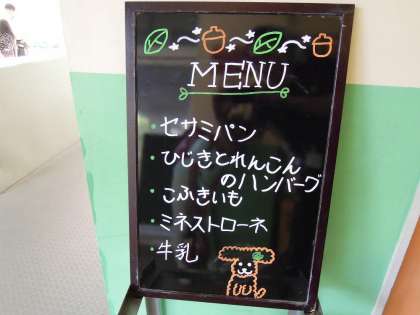 MENU
・セサミパン
・ひじきとれんこん
のハンバーグ
・こふきいも
・ミネストローネ
・牛乳